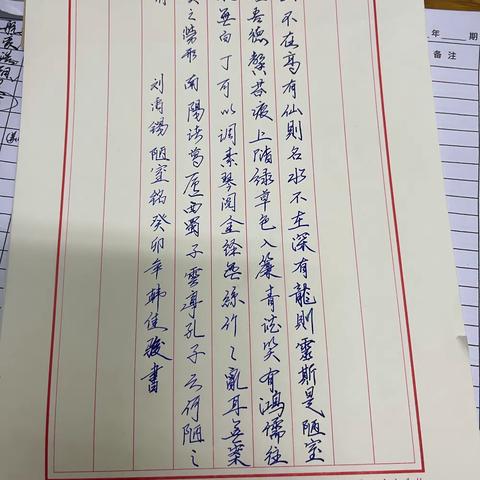 不在高有仙則名水不在深有龍則靈斯是陋室
吾德馨苔痕上階綠草色入簾青談笑有鴻儒往
無白丁可以调素琴阅金经無絲竹之亂耳無案
之勞形南陽诸葛廬西蜀子雲亭孔子云何陋之
刘禹锡陋室铭癸卯年韩佳骏書
年 期
备注